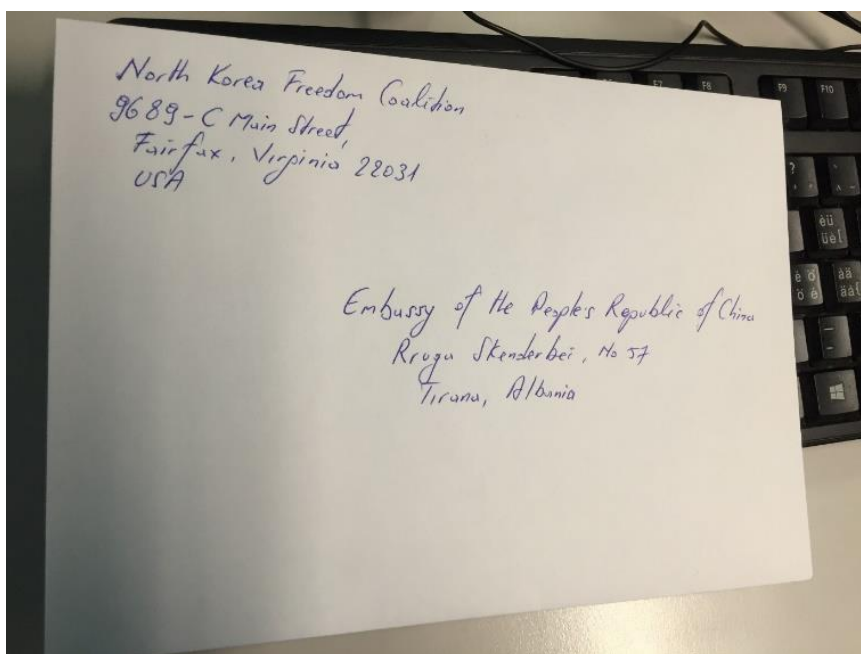 North Korea Freedom Coalition
9689-C Main Street,
Fairfax, Virginia 22031
USA
Embassy of the People's Republic of China
Rruga Skenderbei, No 57
Tirana, Albania
F7
F8
F9
F10